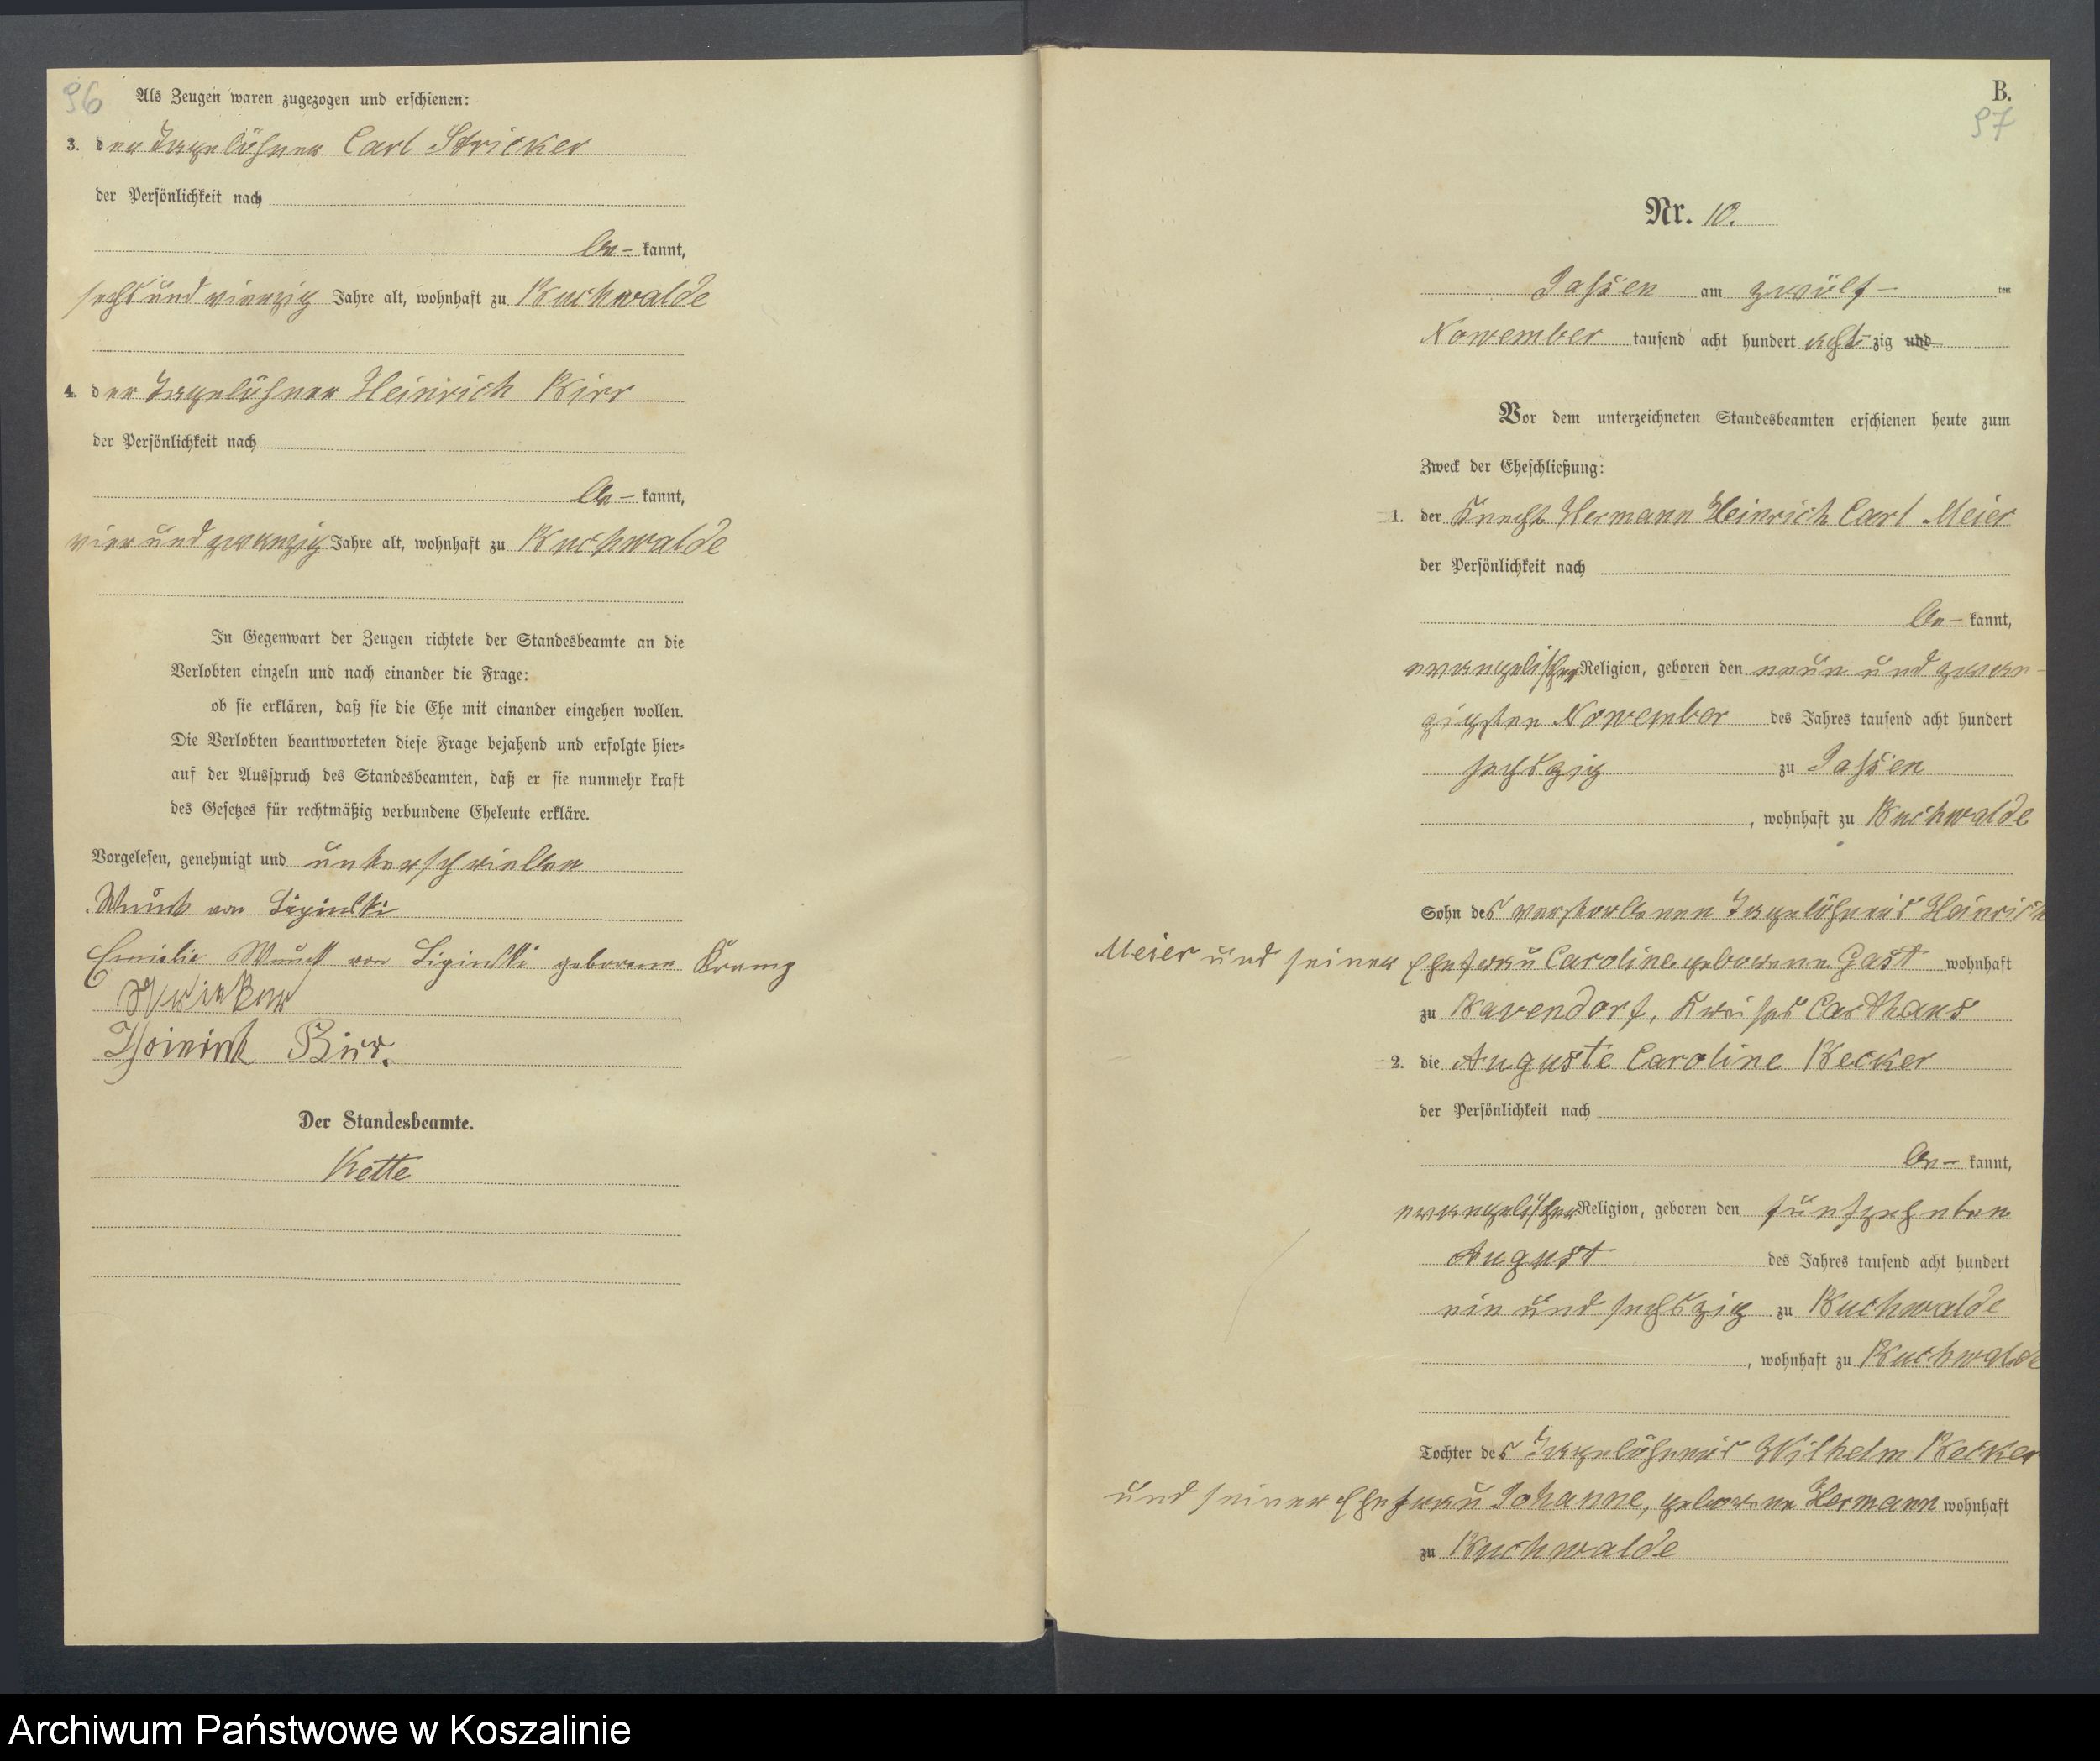 96
Als Zeugen waren zugezogen und erschienen:
3. der Tagelöhner Carl Stricker
der Persönlichkeit nach
be- kannt,
sechs und vierzig Jahre alt, wohnhaft zu Buchwalde
4. der Tagelöhner Heinrich Birr
der Persönlichkeit nach
be- kannt,
vier und zwanzig Jahre alt, wohnhaft zu Buchwalde
In Gegenwart der Zeugen richtete der Standesbeamte an die
Verlobten einzeln und nach einander die Frage:
ob sie erklären, daß sie die Ehe mit einander eingehen wollen.
Die Verlobten beantworteten diese Frage bejahend und erfolgte hier-
auf der Ausspruch des Standesbeamten, daß er sie nunmehr kraft
des Gesetzes für rechtmäßig verbundene Eheleute erkläre.
Vorgelesen, genehmigt und unterschrieben
von Lipinski
Emilie von Lipinski geborene
Stricker
Heinrich Birr.
Der Standesbeamte.
Kette
B.
97
Nr. 10.
Jassen am zwölf- ten
November tausend acht hundert acht- zig und
Vor dem unterzeichneten Standesbeamten erschienen heute zum
Zweck der Eheschließung:
1. der Knecht Hermann Heinrich Carl Meier
der Persönlichkeit nach
be- kannt,
evangelischer Religion, geboren den neun und zwan-
zigsten November des Jahres tausend acht hundert
sechszig zu Jassen
, wohnhaft zu Buchwalde
Sohn des verstorbenen Tagelöhners Heinrich
Meier und seiner Ehefrau Caroline geborene Gast wohnhaft
zu Bavendorf, Kreises Carthaus
2. die Auguste Caroline Becker
der Persönlichkeit nach
be- kannt,
evangelischer Religion, geboren den fünfzehnten
August des Jahres tausend acht hundert
ein und sechszig zu Buchwalde
, wohnhaft zu Buchwalde
Tochter des Tagelöhners Wilhelm Becker
und seiner Ehefrau Johanne, geborene Hermann wohnhaft
zu Buchwalde
Archiwum Państwowe w Koszalinie